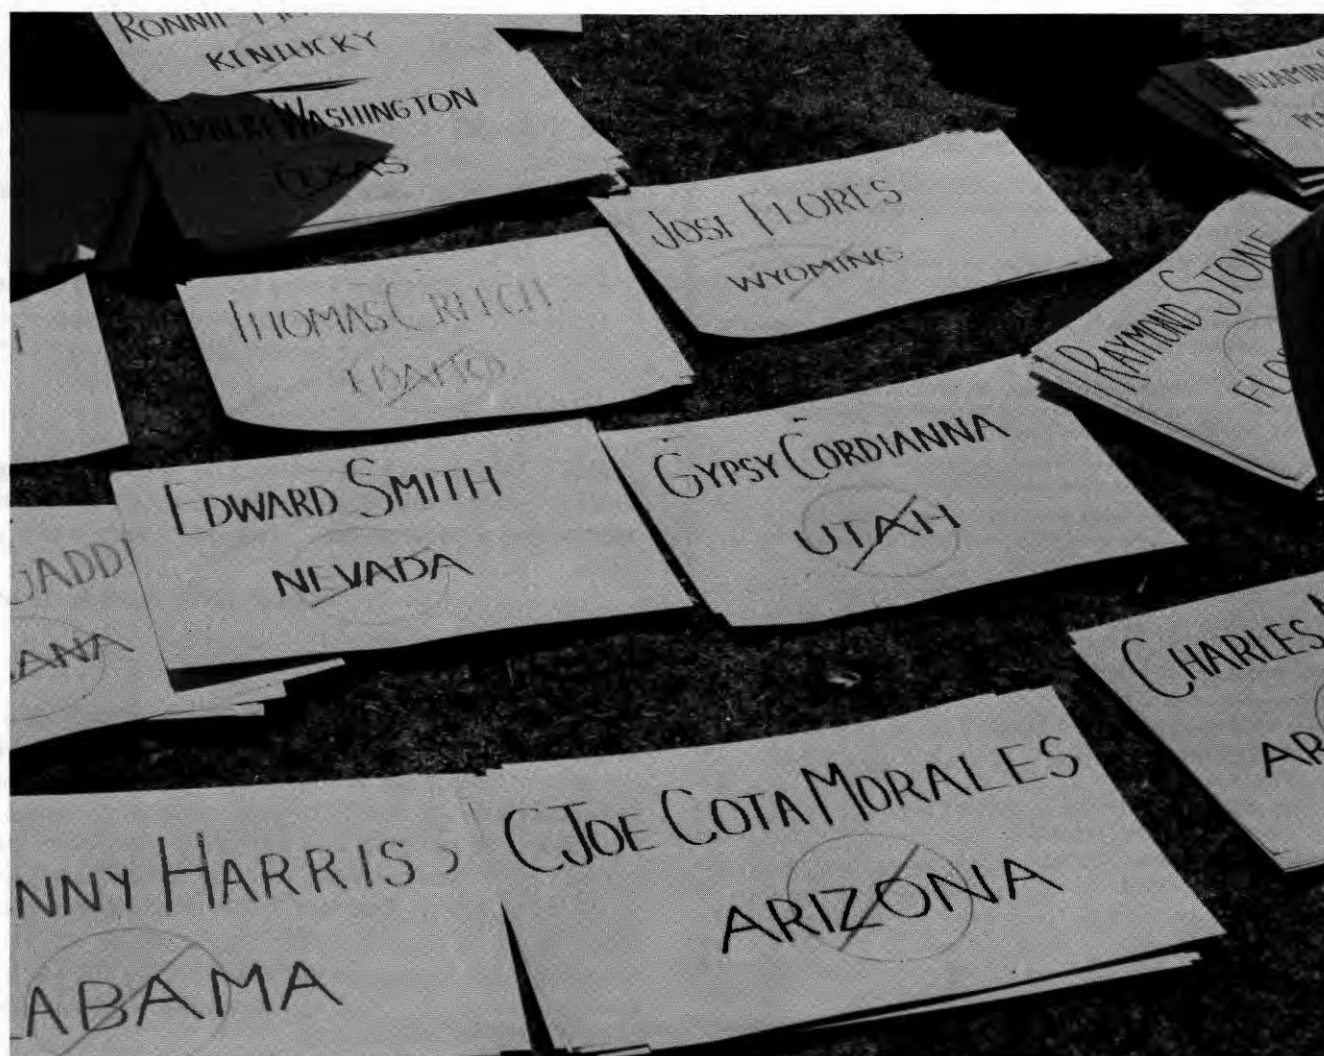 RONNIE
KENTUCKY
WASHINGTON
TEXAS
JOSE FLORES
WYOMING
THOMAS CREECH
IDAHO
RAYMOND STONE
FLO
EDWARD SMITH
NEVADA
GYPSY CORDIANNA
UTAH
GADDI
ANA
CHARLES
AR
NNY HARRIS
LABAMA
CJOE COTA MORALES
ARIZONA